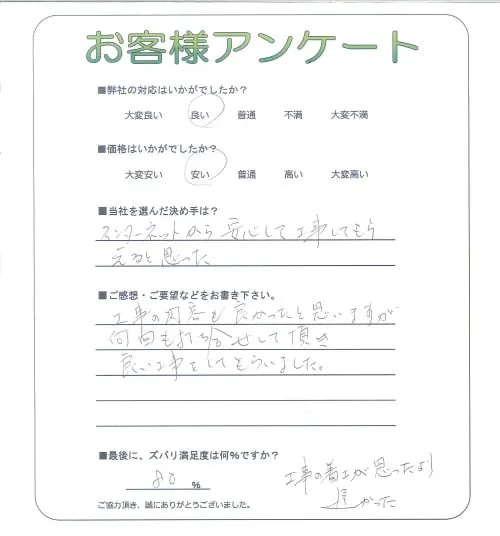 お客様アンケート
■弊社の対応はいかがでしたか？
大変良い 良い 普通 不満 大変不満
■価格はいかがでしたか？
大変安い 安い 普通 高い 大変高い
■当社を選んだ決め手は？
インターネットから安心して工事してもら
えると思った
■ご感想・ご要望などをお書き下さい。
工事の内容も良かったと思いますが
何回も打ち合せして頂き
良い工事をしてもらいました。
■最後に、ズバリ満足度は何%ですか？
80 %
工事の着工が思ったより
かった
ご協力頂き、誠にありがとうございました。